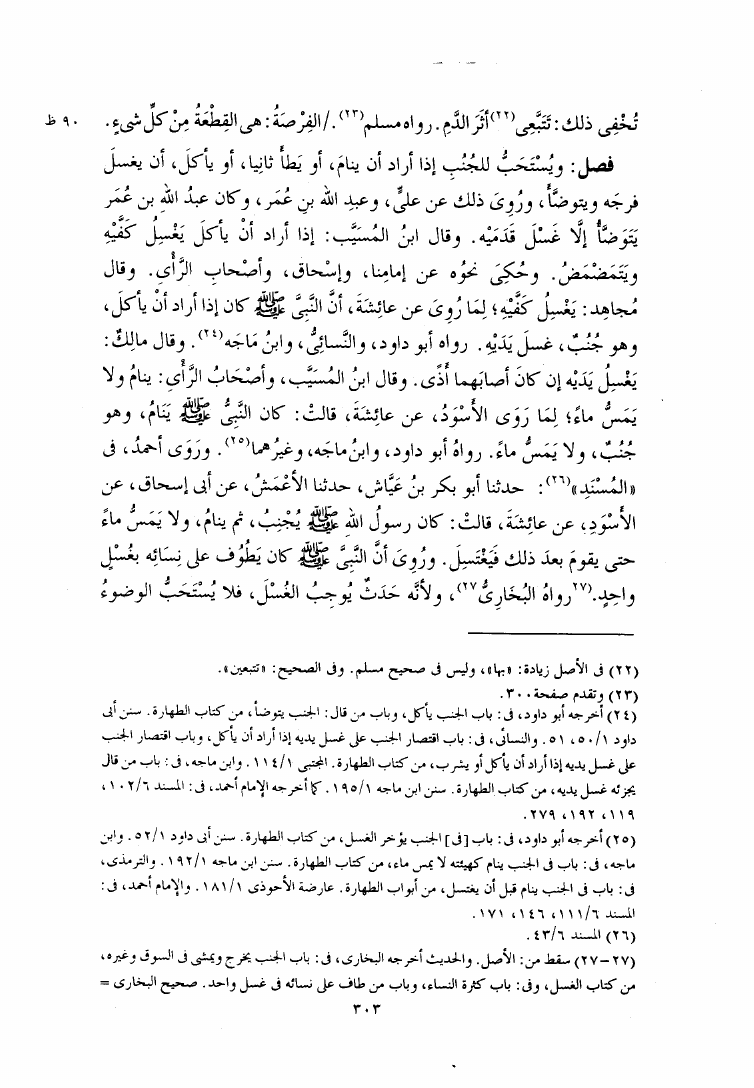 تُخْفِى ذلك: تَتَبَّعِى(٢٢) أثَرَ الدَّمِ. رواه مسلم(٢٣). /الفِرْصَةُ: هى القِطْعَةُ مِنْ كلِّ شىءٍ. ٩٠ ظ
فصل: ويُسْتَحَبُّ للجُنُبِ إذا أراد أن ينامَ، أو يَطَأَ ثانِيا، أو يأكلَ، أن يغسلَ
فرجَه ويتوضَّأَ، ورُوِىَ ذلك عن علىٍّ، وعبدِ الله بنِ عُمَر، وكان عبدُ اللهِ بن عُمَر
يَتَوَضَّأُ إلَّا غَسْلَ قَدَمَيْه. وقال ابنُ المُسَيَّب: إذا أراد أنْ يأكلَ يَغْسِلُ كَفَّيْهِ
ويَتَمَضْمَضُ. وحُكِىَ نحوُه عن إمامِنا، وإسْحاق، وأصْحابِ الرَّأْىِ. وقال
مُجاهد: يَغْسِلُ كَفَّيْهِ؛ لِمَا رُوِىَ عن عائِشةَ، أنَّ النَّبِىَّ ﷺ كان إذا أراد أنْ يأكلَ،
وهو جُنُبٌ، غسلَ يَدَيْهِ. رواه أبو داود، والنَّسائِىُّ، وابنُ مَاجَه(٢٤). وقال مالِكٌ:
يَغْسِلُ يَدَيْه إن كانَ أصابَهما أَذًى. وقال ابنُ المُسَيَّب، وأصْحَابُ الرَّأْىِ: ينامُ ولا
يَمَسُّ ماءً؛ لِمَا رَوَى الأسْوَدُ، عن عائِشةَ، قالتْ: كان النَّبِىُّ ﷺ يَنَامُ، وهو
جُنُبٌ، ولا يَمَسُّ ماءً. رواهُ أبو داود، وابنُ ماجَه، وغيرُهما(٢٥). ورَوَى أحمدُ، فى
«المُسْنَدِ»(٢٦): حدثنا أبو بكر بنُ عَيَّاش، حدثنا الأعْمَشُ، عن أبى إسحاق، عن
الأسْوَدِ، عن عائِشَةَ، قالتْ: كان رسولُ اللهِ ﷺ يُجْنِبُ، ثم ينامُ، ولا يَمَسُّ ماءً
حتى يقومَ بعدَ ذلك فَيَغْتَسِلَ. ورُوِىَ أنَّ النَّبِىَّ ﷺ كان يَطُوُف على نِسَائِه بغُسْلٍ
واحِدٍ. (٢٧رواهُ البُخَارِىُّ٢٧)، ولأنَّه حَدَثٌ يُوجِبُ الغُسْلَ، فلا يُسْتَحَبُّ الوضوءُ
(٢٢) فى الأصل زيادة: «بها»، وليس فى صحيح مسلم. وفى الصحيح: «تتبعين».
(٢٣) وتقدم صفحة ٣٠٠.
(٢٤) أخرجه أبو داود، فى: باب الجنب يأكل، وباب من قال: الجنب يتوضأ، من كتاب الطهارة. سنن أبى
داود ٥٠/١، ٥١. والنسائى، فى: باب اقتصار الجنب على غسل يديه إذا أراد أن يأكل، وباب اقتصار الجنب
على غسل يديه إذا أراد أن يأكل أو يشرب، من كتاب الطهارة. المجتبى ١١٤/١. وابن ماجه، فى: باب من قال
يجزئه غسل يديه، من كتاب الطهارة. سنن ابن ماجه ١٩٥/١. كما أخرجه الإمام أحمد، فى: المسند ١٠٢/٦،
١١٩، ١٩٢، ٢٧٩.
(٢٥) أخرجه أبو داود، فى: باب [فى] الجنب يؤخر الغسل، من كتاب الطهارة. سنن أبى داود ٥٢/١. وابن
ماجه، فى: باب فى الجنب ينام كهيئته لا يمس ماء، من كتاب الطهارة. سنن ابن ماجه ١٩٢/١. والترمذى،
فى: باب فى الجنب ينام قبل أن يغتسل، من أبواب الطهارة. عارضة الأحوذى ١٨١/١. والإمام أحمد، فى:
المسند ١١١/٦، ١٤٦، ١٧١.
(٢٦) المسند ٤٣/٦.
(٢٧-٢٧) سقط من: الأصل. والحديث أخرجه البخارى، فى: باب الجنب يخرج ويمشى فى السوق وغيره،
من كتاب الغسل، وفى: باب كثرة النساء، وباب من طاف على نسائه فى غسل واحد. صحيح البخارى =
٣٠٣